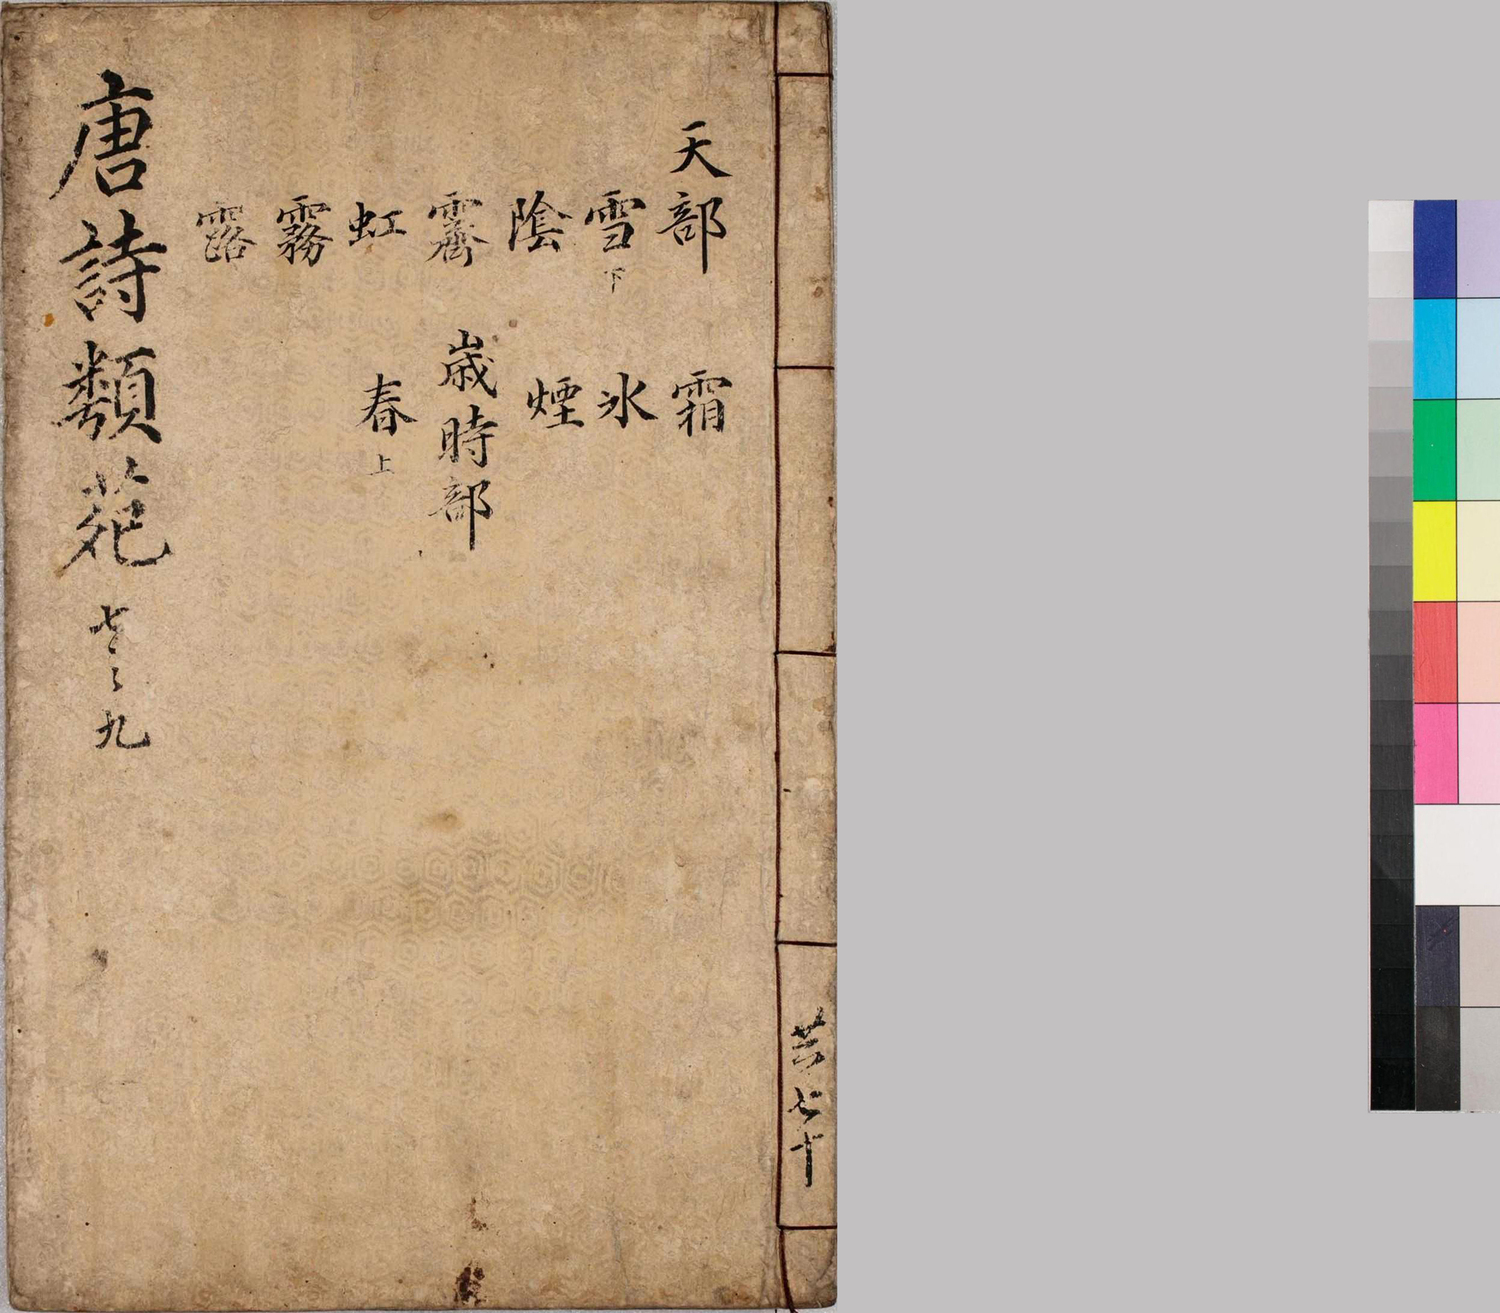 天部
雪下
陰
霽
虹
霧
露
霜
氷
煙
歲時部
春上
唐詩類苑
七之九
共七十